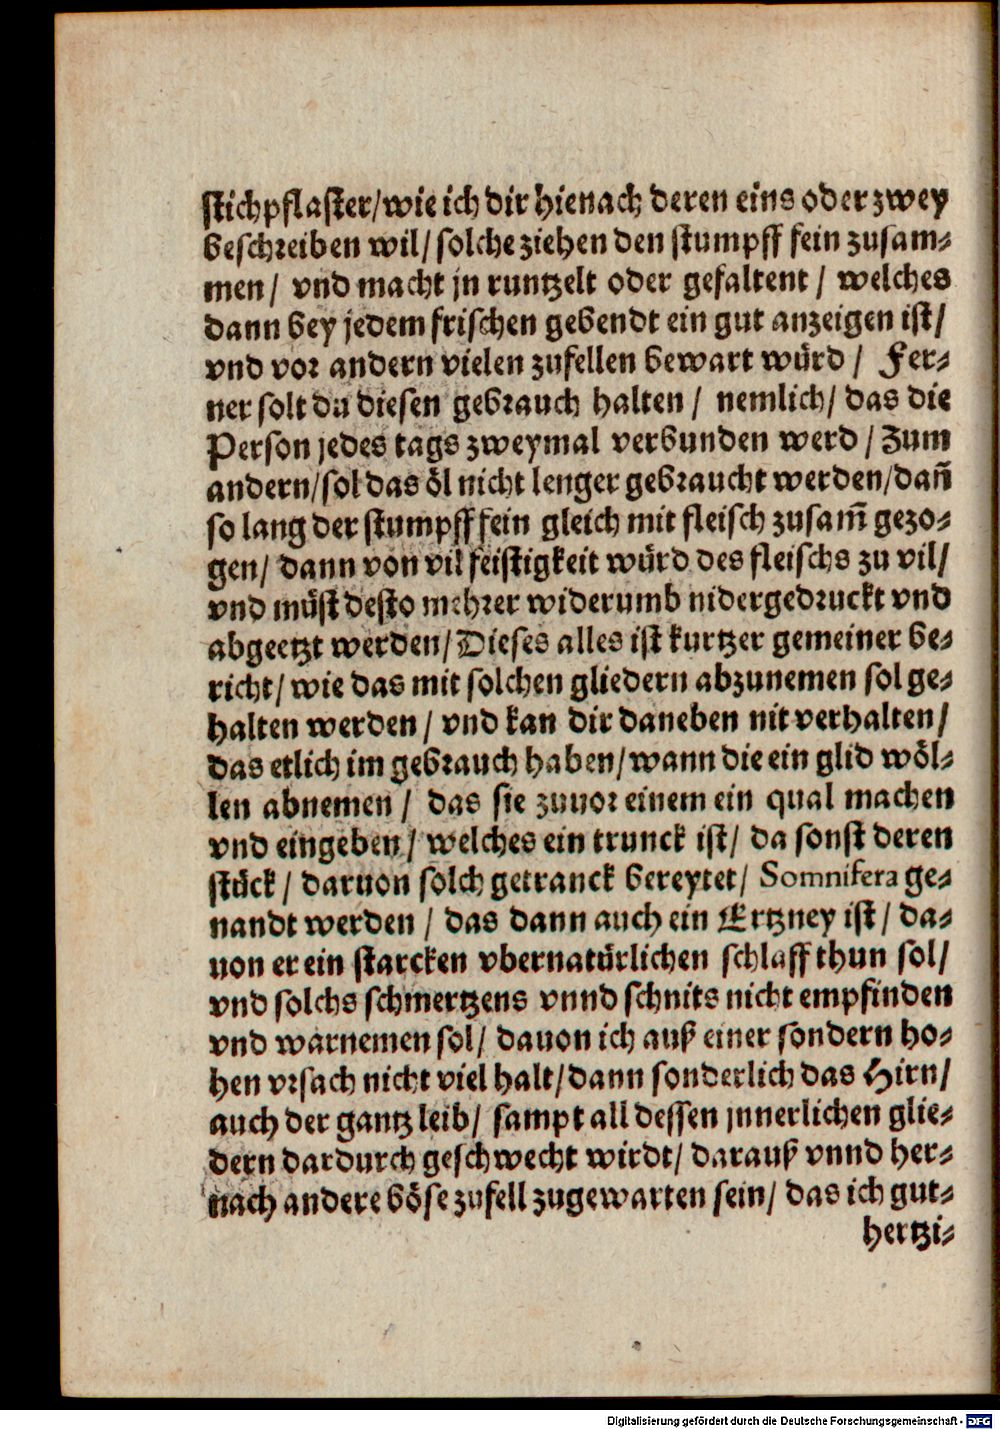 stichpflaster/wie ich dir hienach deren eins oder zwey
beschreiben wil/ solche ziehen den stumpff fein zusam⸗
men/ vnd macht jn runtzelt oder gefaltent/ welches
dann bey jedem frischen gebendt ein gut anzeigen ist/
vnd vor andern vielen zufellen bewart würd/ Fer⸗
ner solt du diesen gebrauch halten/ nemlich/ das die
Person jedes tags zweymal verbunden werd/ Zum
andern/sol das öl nicht lenger gebraucht werden/dañ
so lang der stumpff fein gleich mit fleisch zusam̃ gezo⸗
gen/ dann von vil feistigkeit würd des fleischs zu vil/
vnd müst desto mehrer widerumb nidergedruckt vnd
abgeetzt werden/ Dieses alles ist kurtzer gemeiner be⸗
richt/ wie das mit solchen gliedern abzunemen sol ge⸗
halten werden/ vnd kan dir daneben nit verhalten/
das etlich im gebrauch haben/wann die ein glid wöl⸗
len abnemen/ das sie zuuor einem ein qual machen
vnd eingeben/ welches ein trunck ist/ da sonst deren
stück/ daruon solch getranck bereytet/ Somnifera ge⸗
nandt werden/ das dann auch ein Ertzney ist/ da⸗
uon er ein starcken vbernatürlichen schlaff thun sol/
vnd solchs schmertzens vnnd schnits nicht empfinden
vnd warnemen sol/ dauon ich auß einer sondern ho⸗
hen vrsach nicht viel halt/dann sonderlich das Hirn/
auch der gantz leib/ sampt all dessen jnnerlichen glie⸗
dern dardurch geschwecht wirdt/ darauß vnnd her⸗
nach andere böse zufell zugewarten sein/ das ich gut⸗
hertzi⸗
Digitalisierung gefördert durch die Deutsche Forschungsgemeinschaft - DFG